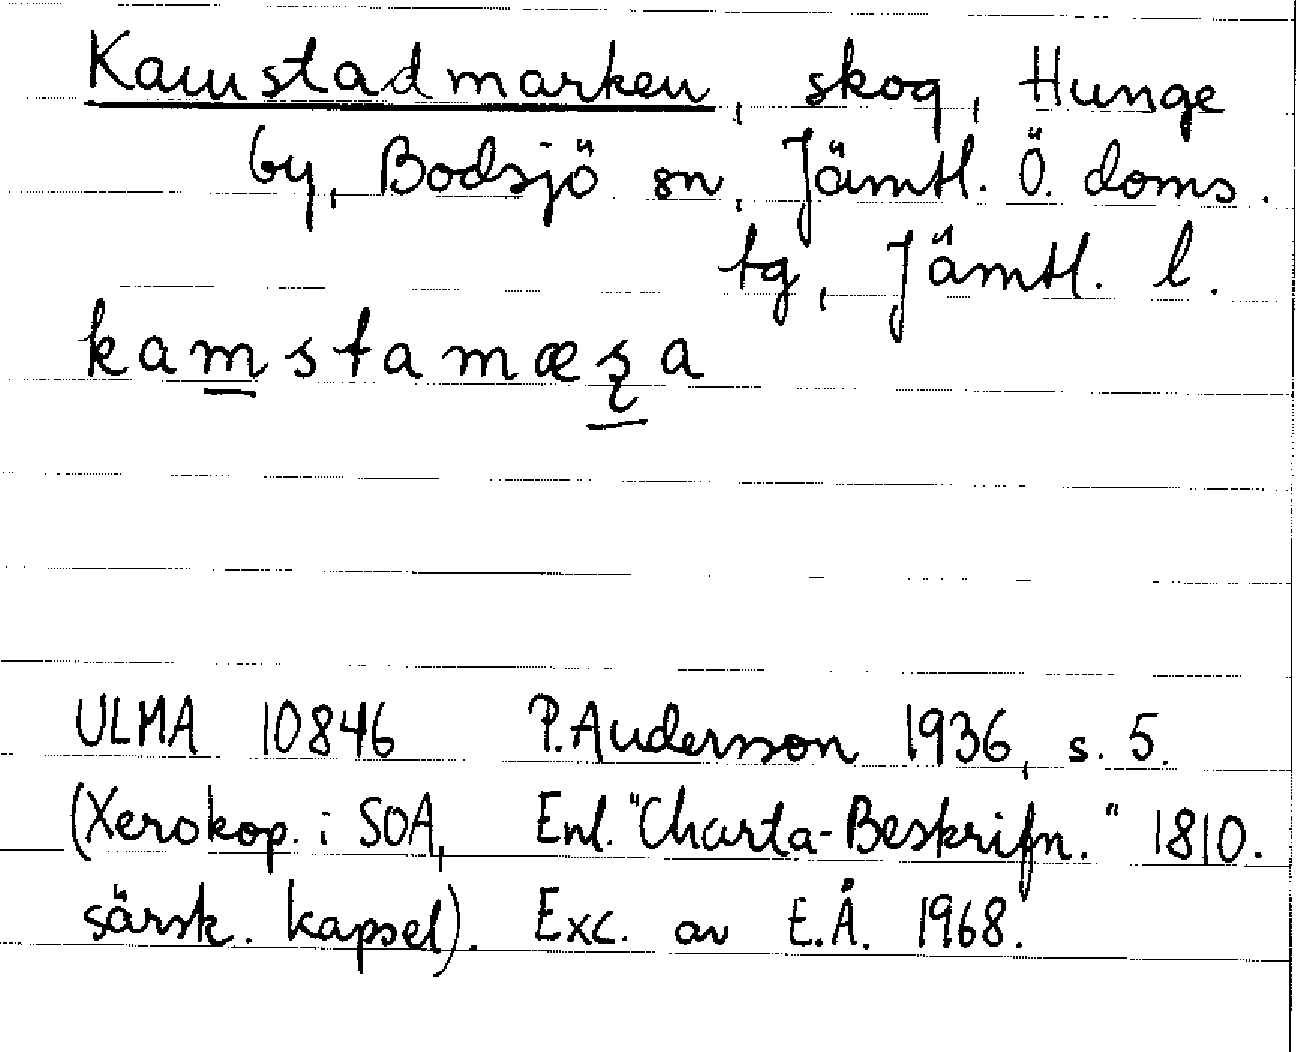 Kamstadmarken, skog, Hunge
by, Bodsjö sn, Jämtl. Ö. doms.
tg, Jämtl. l.
kamstamæʂa
ULMA 10846 P. Andersson 1936, s. 5.
(Xerokop. i SOA, Enl. "Charta-Beskrifn." 1810.
särsk. kapsel). Exc. av E.Å. 1968.